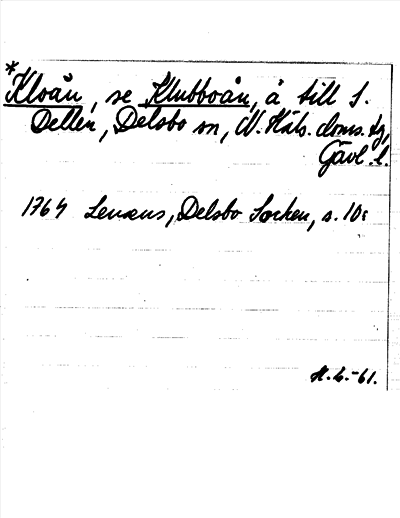 *Kloån, se Klubboån, å till S.
Dellen, Delsbo sn, N. Häls. doms. tg,
Gävl. l.
1764 Lenæus, Delsbo Socken, s. 10:
H. L. -61.